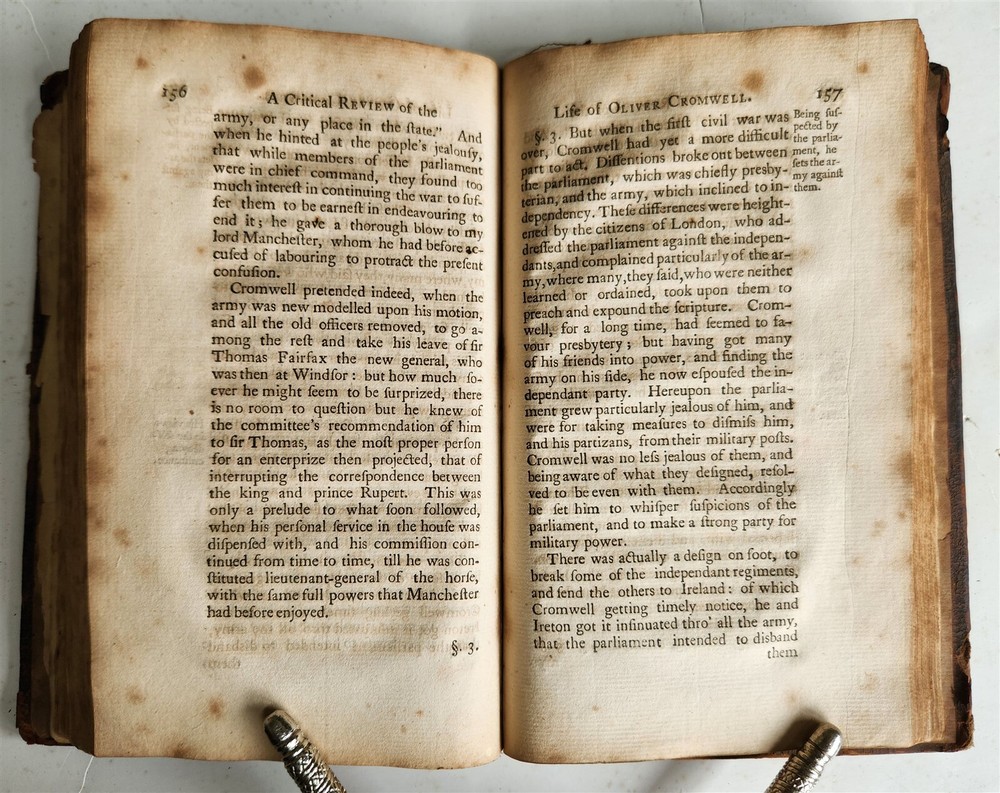 156
A Critical REVIEW of the
army, or any place in the ſtate." And
when he hinted at the people's jealouſy,
that while members of the parliament
were in chief command, they found too
much intereſt in continuing the war to ſuf-
fer them to be earneſt in endeavouring to
end it; he gave a thorough blow to my
lord Mancheſter, whom he had before ac-
cuſed of labouring to protract the preſent
confuſion.
Cromwell pretended indeed, when the
army was new modelled upon his motion,
and all the old officers removed, to go a-
mong the reſt and take his leave of ſir
Thomas Fairfax the new general, who
was then at Windſor: but how much ſo-
ever he might ſeem to be ſurprized, there
is no room to queſtion but he knew of
the committee's recommendation of him
to ſir Thomas, as the moſt proper perſon
for an enterprize then projected, that of
interrupting the correſpondence between
the king and prince Rupert. This was
only a prelude to what ſoon followed,
when his perſonal ſervice in the houſe was
diſpenſed with, and his commiſſion con-
tinued from time to time, till he was con-
ſtituted lieutenant-general of the horſe,
with the ſame full powers that Mancheſter
had before enjoyed.
§. 3.
157
Life of OLIVER CROMWELL.
§. 3. But when the firſt civil war was
over, Cromwell had yet a more difficult
part to act. Diſſentions broke out between
the parliament, which was chiefly preſby-
terian, and the army, which inclined to in-
dependency. Theſe differences were height-
ened by the citizens of London, who ad-
dreſſed the parliament againſt the indepen-
dants, and complained particularly of the ar-
my, where many, they ſaid, who were neither
learned or ordained, took upon them to
preach and expound the ſcripture. Crom-
well, for a long time, had ſeemed to fa-
vour preſbytery; but having got many
of his friends into power, and finding the
army on his ſide, he now eſpouſed the in-
dependant party. Hereupon the parlia-
ment grew particularly jealous of him, and
were for taking meaſures to diſmiſs him,
and his partizans, from their military poſts.
Cromwell was no leſs jealous of them, and
being aware of what they deſigned, reſol-
ved to be even with them. Accordingly
he ſet him to whiſper ſuſpicions of the
parliament, and to make a ſtrong party for
military power.
There was actually a deſign on foot, to
break ſome of the independant regiments,
and ſend the others to Ireland: of which
Cromwell getting timely notice, he and
Ireton got it inſinuated thro' all the army,
that the parliament intended to diſband
them
Being ſuſ-
pected by
the parlia-
ment, he
ſets the ar-
my againſt
them.